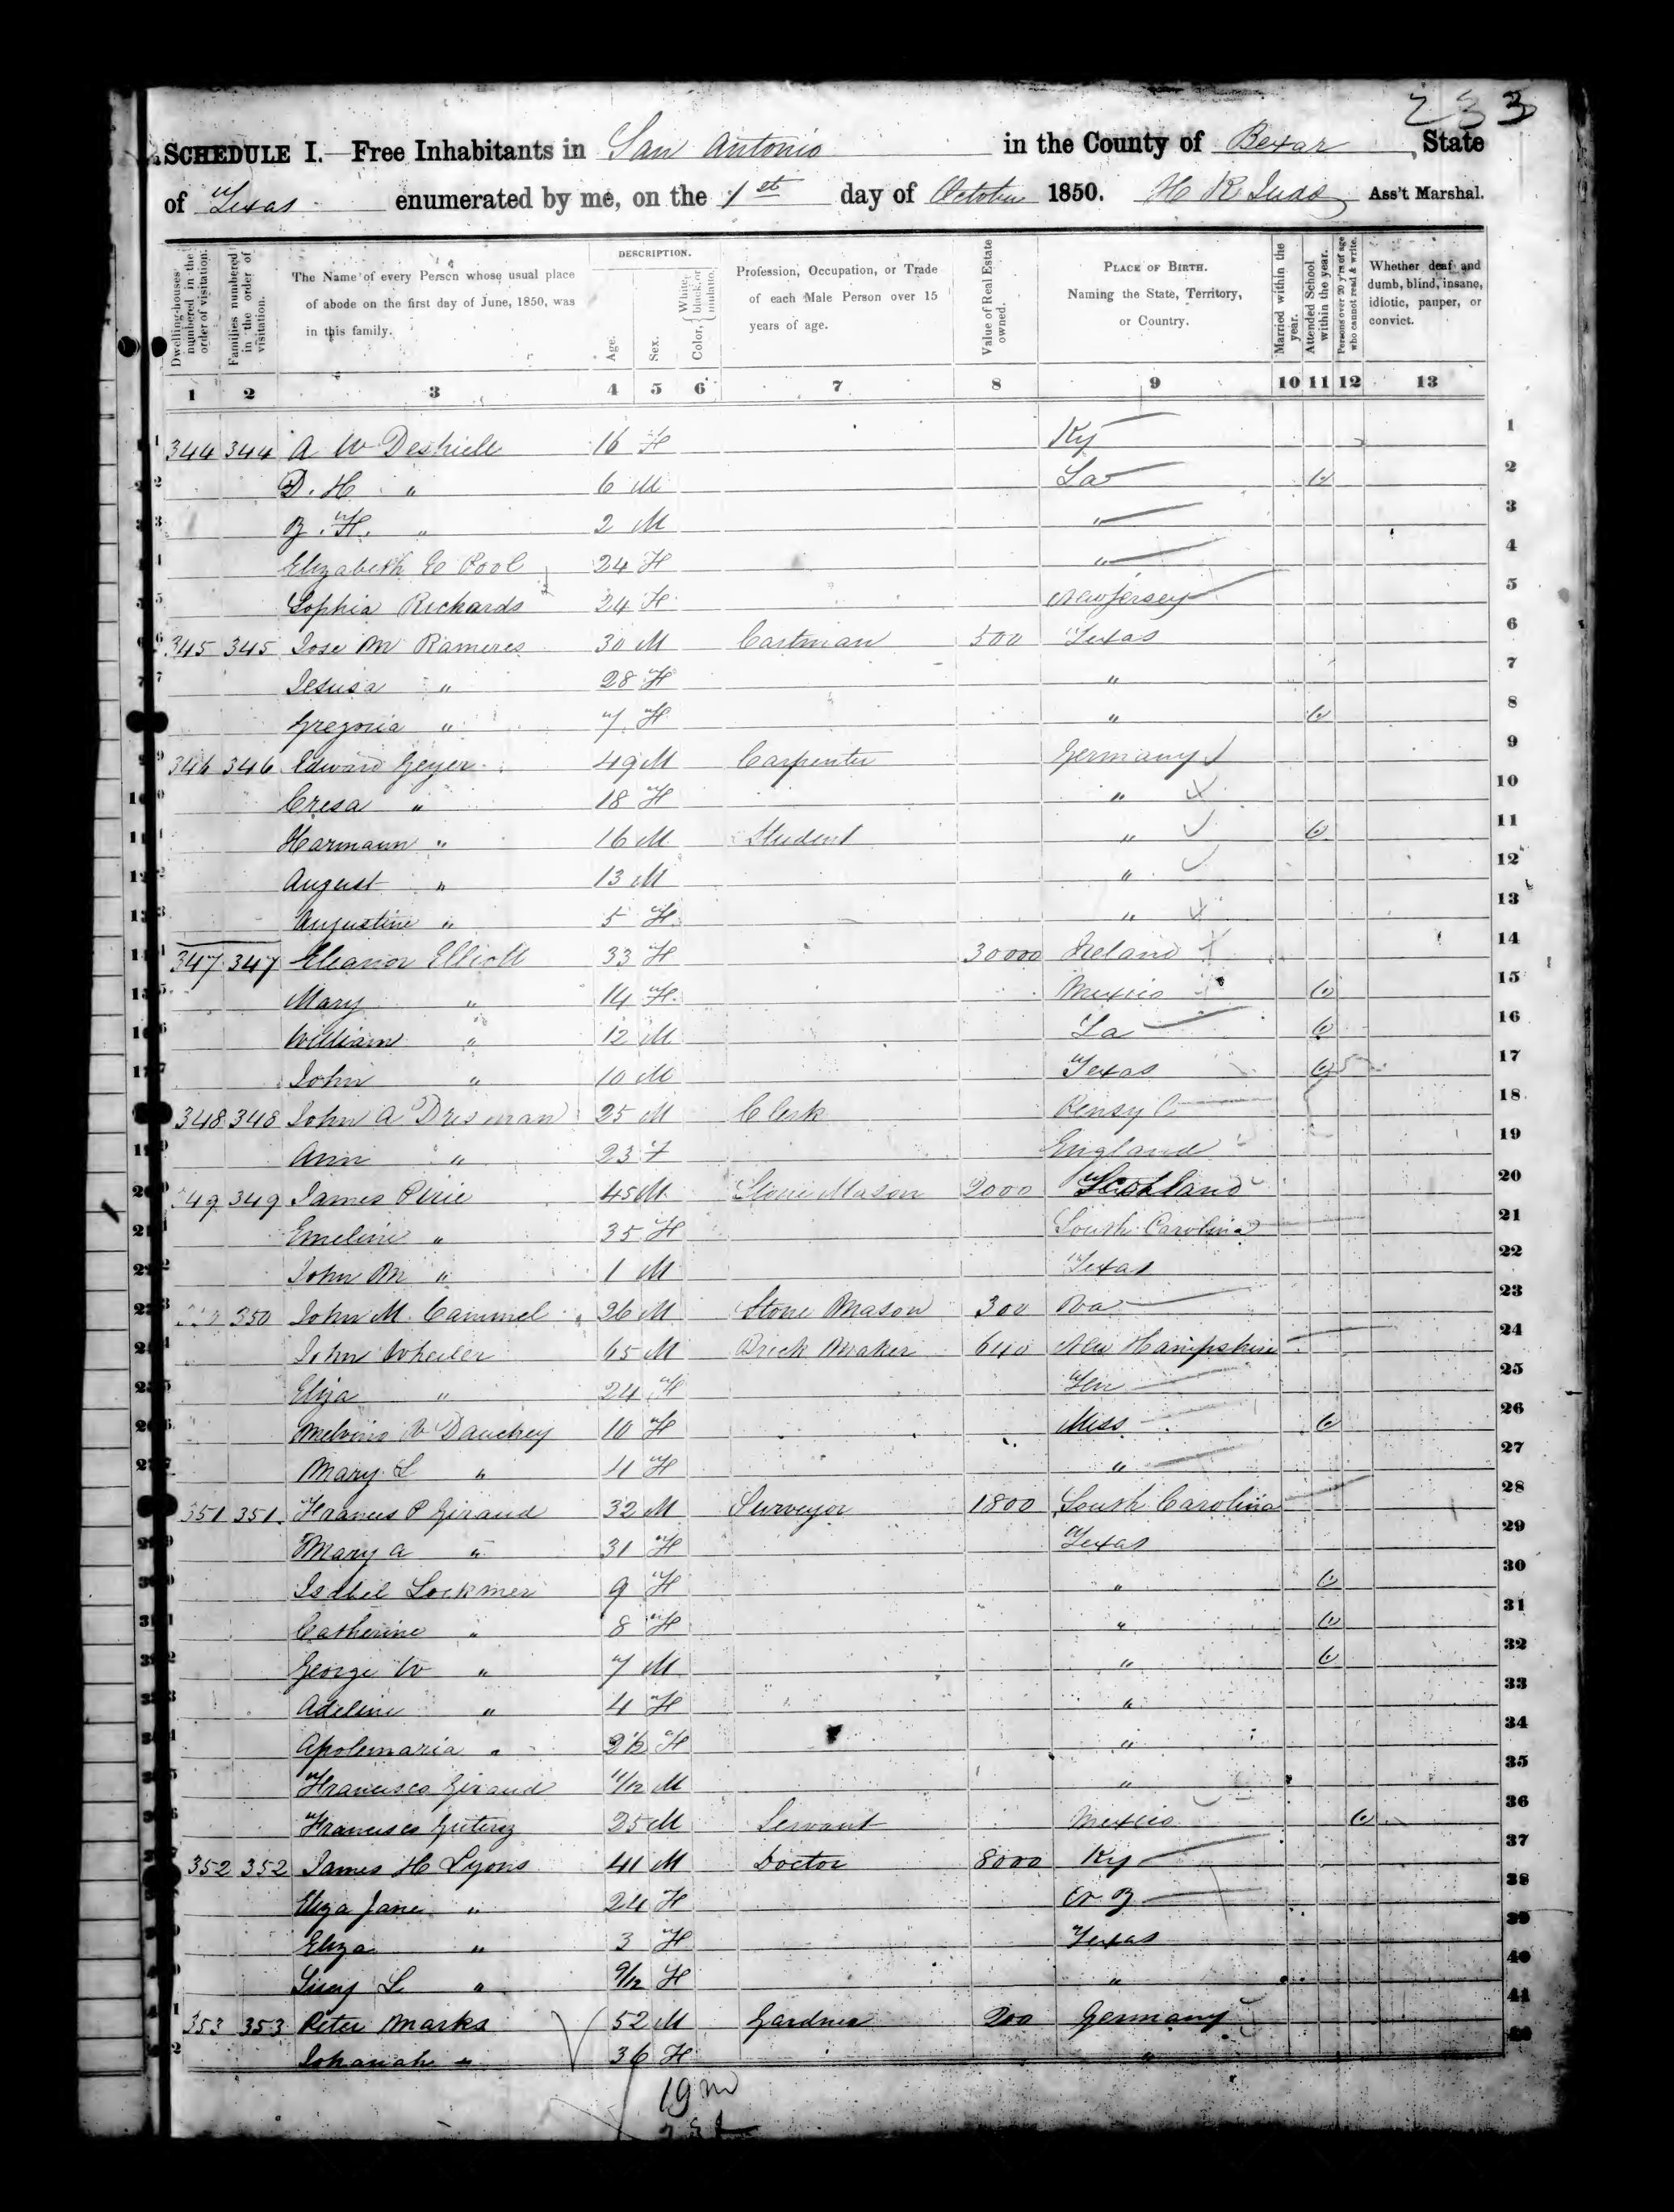 233
SCHEDULE I. Free Inhabitants in San Antonio in the County of Bexar State
of Texas enumerated by me, on the 1st day of October 1850. Ass't Marshal.
Dwelling-houses numbered in the order of visitation.
Families numbered in the order of visitation.
The Name of every Person whose usual place of abode on the first day of June, 1850, was in this family.
DESCRIPTION.
Age.
Sex.
Color, { White, black, or mulatto.
Profession, Occupation, or Trade of each Male Person over 15 years of age.
Value of Real Estate owned.
PLACE OF BIRTH. Naming the State, Territory, or Country.
Married within the year.
Attended School within the year.
Persons over 20 y'rs of age who cannot read & write.
Whether deaf and dumb, blind, insane, idiotic, pauper, or convict.
1 2 3 4 5 6 7 8 9 10 11 12 13
1 344 344 A W Deshiell 16 F Ky 1
2 D. H " 6 M La 2
3 B. F. " 2 M " 3
Elizabeth E Pool 24 F " 4
5 Sophia Richards 24 F New Jersey 5
6 345 345 Jose M Rameres 30 M Cartman 500 Texas 6
7 Jesusa " 28 F " 7
Gregoria " 7 F " 8
9 346 346 Edward Geyer 49 M Carpenter Germany 9
10 Cresa " 18 F " 10
11 Harmann " 16 M Student " 11
12 August " 13 M " 12
13 Augustine " 5 F " 13
347 347 Eleanor Elliott 33 F 30000 Ireland 14
15 Mary " 14 F Mexico 15
16 William " 12 M La 16
17 John " 10 M Texas 17
348 348 John A Dresman 25 M Clerk Pensy 18
19 Ann " 23 F England 19
20 349 349 James Pirie 45 M Stone Mason 2000 Scotland 20
21 Emeline " 35 F South Carolina 21
22 John M " 1 M Texas 22
23 350 John M. Cammel 26 M Stone Mason 300 Va 23
John Wheeler 65 M Brick Maker 640 New Hampshire 24
25 Eliza " 24 F Ten 25
26 Melvina Dauchey 10 F Miss 26
27 Mary L " 4 F " 27
351 351 Francis P Giraud 32 M Surveyor 1800 South Carolina 28
29 Mary A " 31 F Texas 29
30 Isabel Lockmer 9 F " 30
31 Catherine " 8 F " 31
32 George W " 7 M " 32
33 Adeline " 4 F " 33
34 Apolemaria " 2½ F " 34
35 Francisco Giraud 11/12 M " 35
36 Francisco Guterez 25 M Servant Mexico 36
352 352 James H Lyons 41 M Doctor 8000 Ky 37
Eliza Jane " 24 F 38
Eliza " 3 F Texas 39
Lucy L " 9/12 F " 40
353 353 Peter Marks 52 M Gardner 200 Germany 41
Johanah " 36 F " 42
19 m